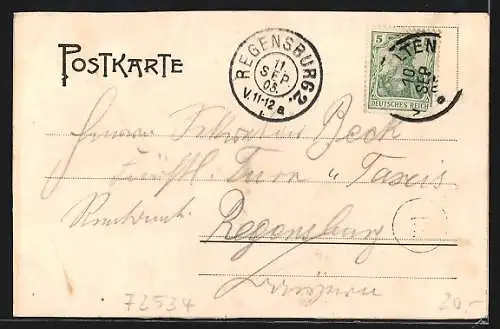 POSTKARTE
REGENSBURG 2.
11
SEP
03.
V.11-12
a
5
DEUTSCHES REICH
LTEN
10
SEP
Herrn
Beck
Fürstl. Turn u Taxis
Regensburg
72534
20.-